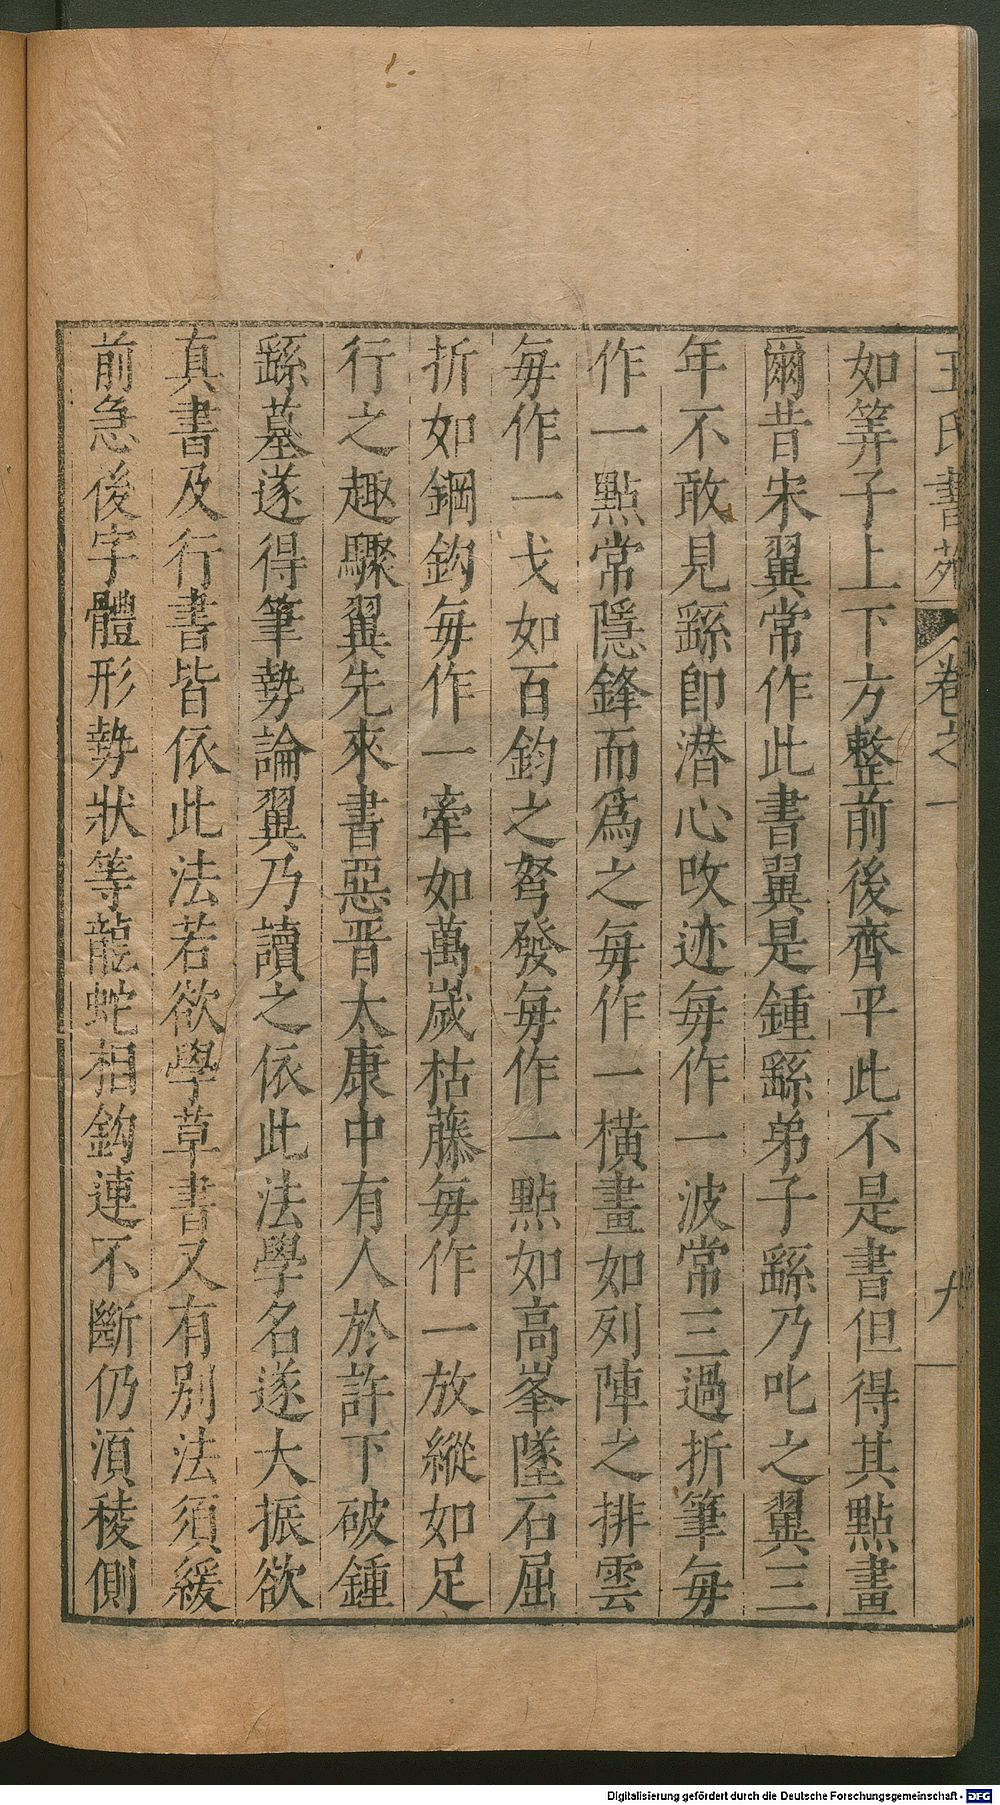 王氏書苑 卷之一 九
如筭子上下方整前後齊平此不是書但得其點畫
爾昔宋翼常作此書翼是鍾繇弟子繇乃叱之翼三
年不敢見繇即潜心改迹每作一波常三過折筆每
作一點常隱鋒而爲之每作一橫畫如列陣之排雲
每作一戈如百鈞之弩發每作一點如高峯墜石屈
折如鋼鈎每作一牽如萬歲枯藤每作一放縱如足
行之趣驟翼先來書惡晋太康中有人於許下破鍾
繇墓遂得筆勢論翼乃讀之依此法學名遂大振欲
真書及行書皆依此法若欲學草書又有别法須緩
前急後字體形勢狀等龍蛇相鈎連不斷仍須稜側
Digitalisierung gefördert durch die Deutsche Forschungsgemeinschaft - DFG